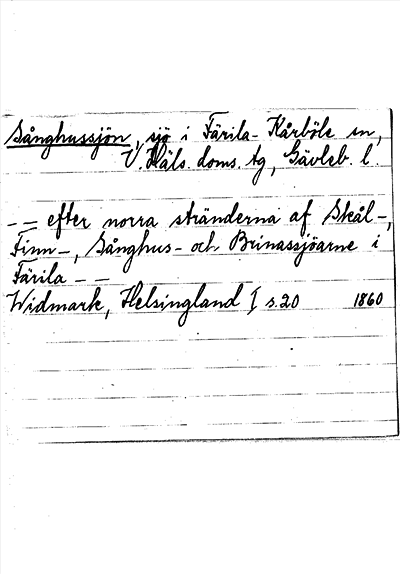 Sånghussjön, sjö i Färila-Kårböle sn,
V. Häls. doms. tg, Gävleb. l.
-- efter norra stränderna af Skål-,
Finn-, Sånghus- och Brinassjöarne i
Färila --
Widmark, Helsingland I s. 20 1860